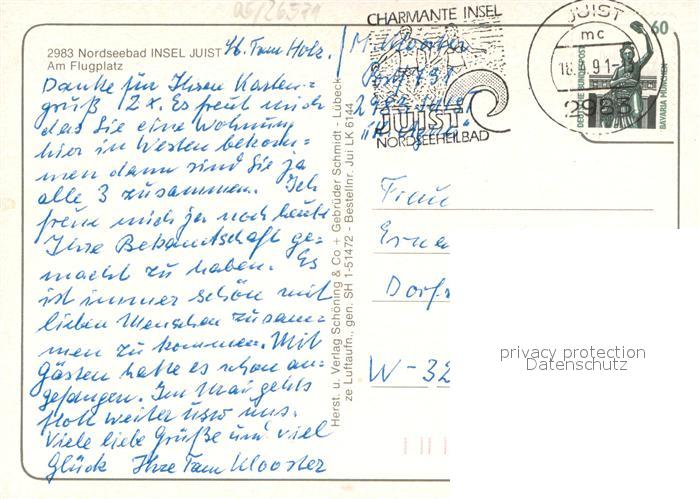 05/26571
2983 Nordseebad INSEL JUIST
Am Flugplatz
Danke für Ihren Karten-
gruß 2x. Es freut mich
das Sie eine Wohnung
hier im Westen bekom-
men dann sind Sie ja
alle 3 zusammen. Ich
freue mich ja noch heute
Ihre Bekanntschaft ge-
macht zu haben. Es
ist immer schön mit
lieben Menschen zusam-
men zu kommen. Mit
Gästen hatte es schon an-
gefangen. Im Mai gehts
flott weiter usw uns.
Viele liebe Grüße und viel
Glück Ihre Fam Klooster
Herst. u. Verlag Schöning & Co + Gebrüder Schmidt · Lübeck
ze Luftaufn., gen. SH 1-51472 - Bestellnr. Jui LK 6144
CHARMANTE INSEL
JUIST
NORDSEEHEILBAD
M. Klooster
2983 Juist
JUIST
mc
2983
60
DEUTSCHE BUNDESPOST
BAVARIA MÜNCHEN
Frau
Erne
Dorfs
W-32
privacy protection
Datenschutz